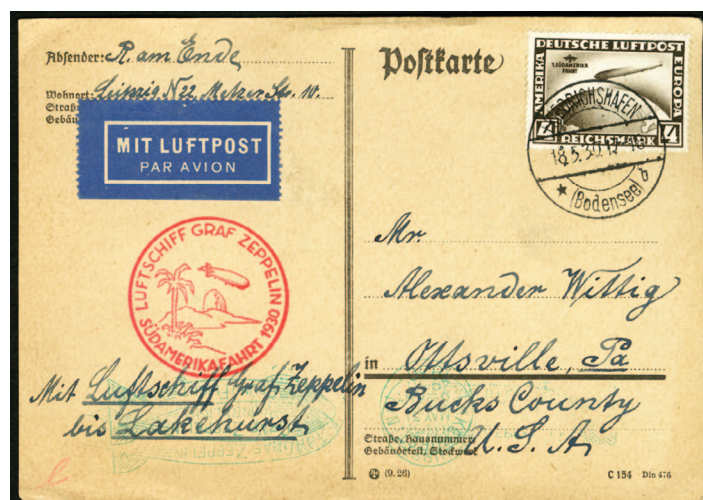 Absender: R. am Ende
Wohnort: Leipzig N22 Metzer Str. 10.
MIT LUFTPOST
PAR AVION
LUFTSCHIFF GRAF ZEPPELIN
SÜDAMERIKAFAHRT 1930
Mit Luftschiff Graf Zeppelin
bis Lakehurst
Postkarte
DEUTSCHE LUFTPOST
AMERIKA
EUROPA
1.SÜDAMERIKA
FAHRT
REICHSMARK
4
FRIEDRICHSHAFEN
18.5.30.17-18
(Bodensee) b
Mr.
Alexander Wittig
in Ottsville, Pa
Bucks County
U.S.A.
Straße, Hausnummer,
Gebäudeteil, Stockwerk
(9.26)
C 154 Din 476